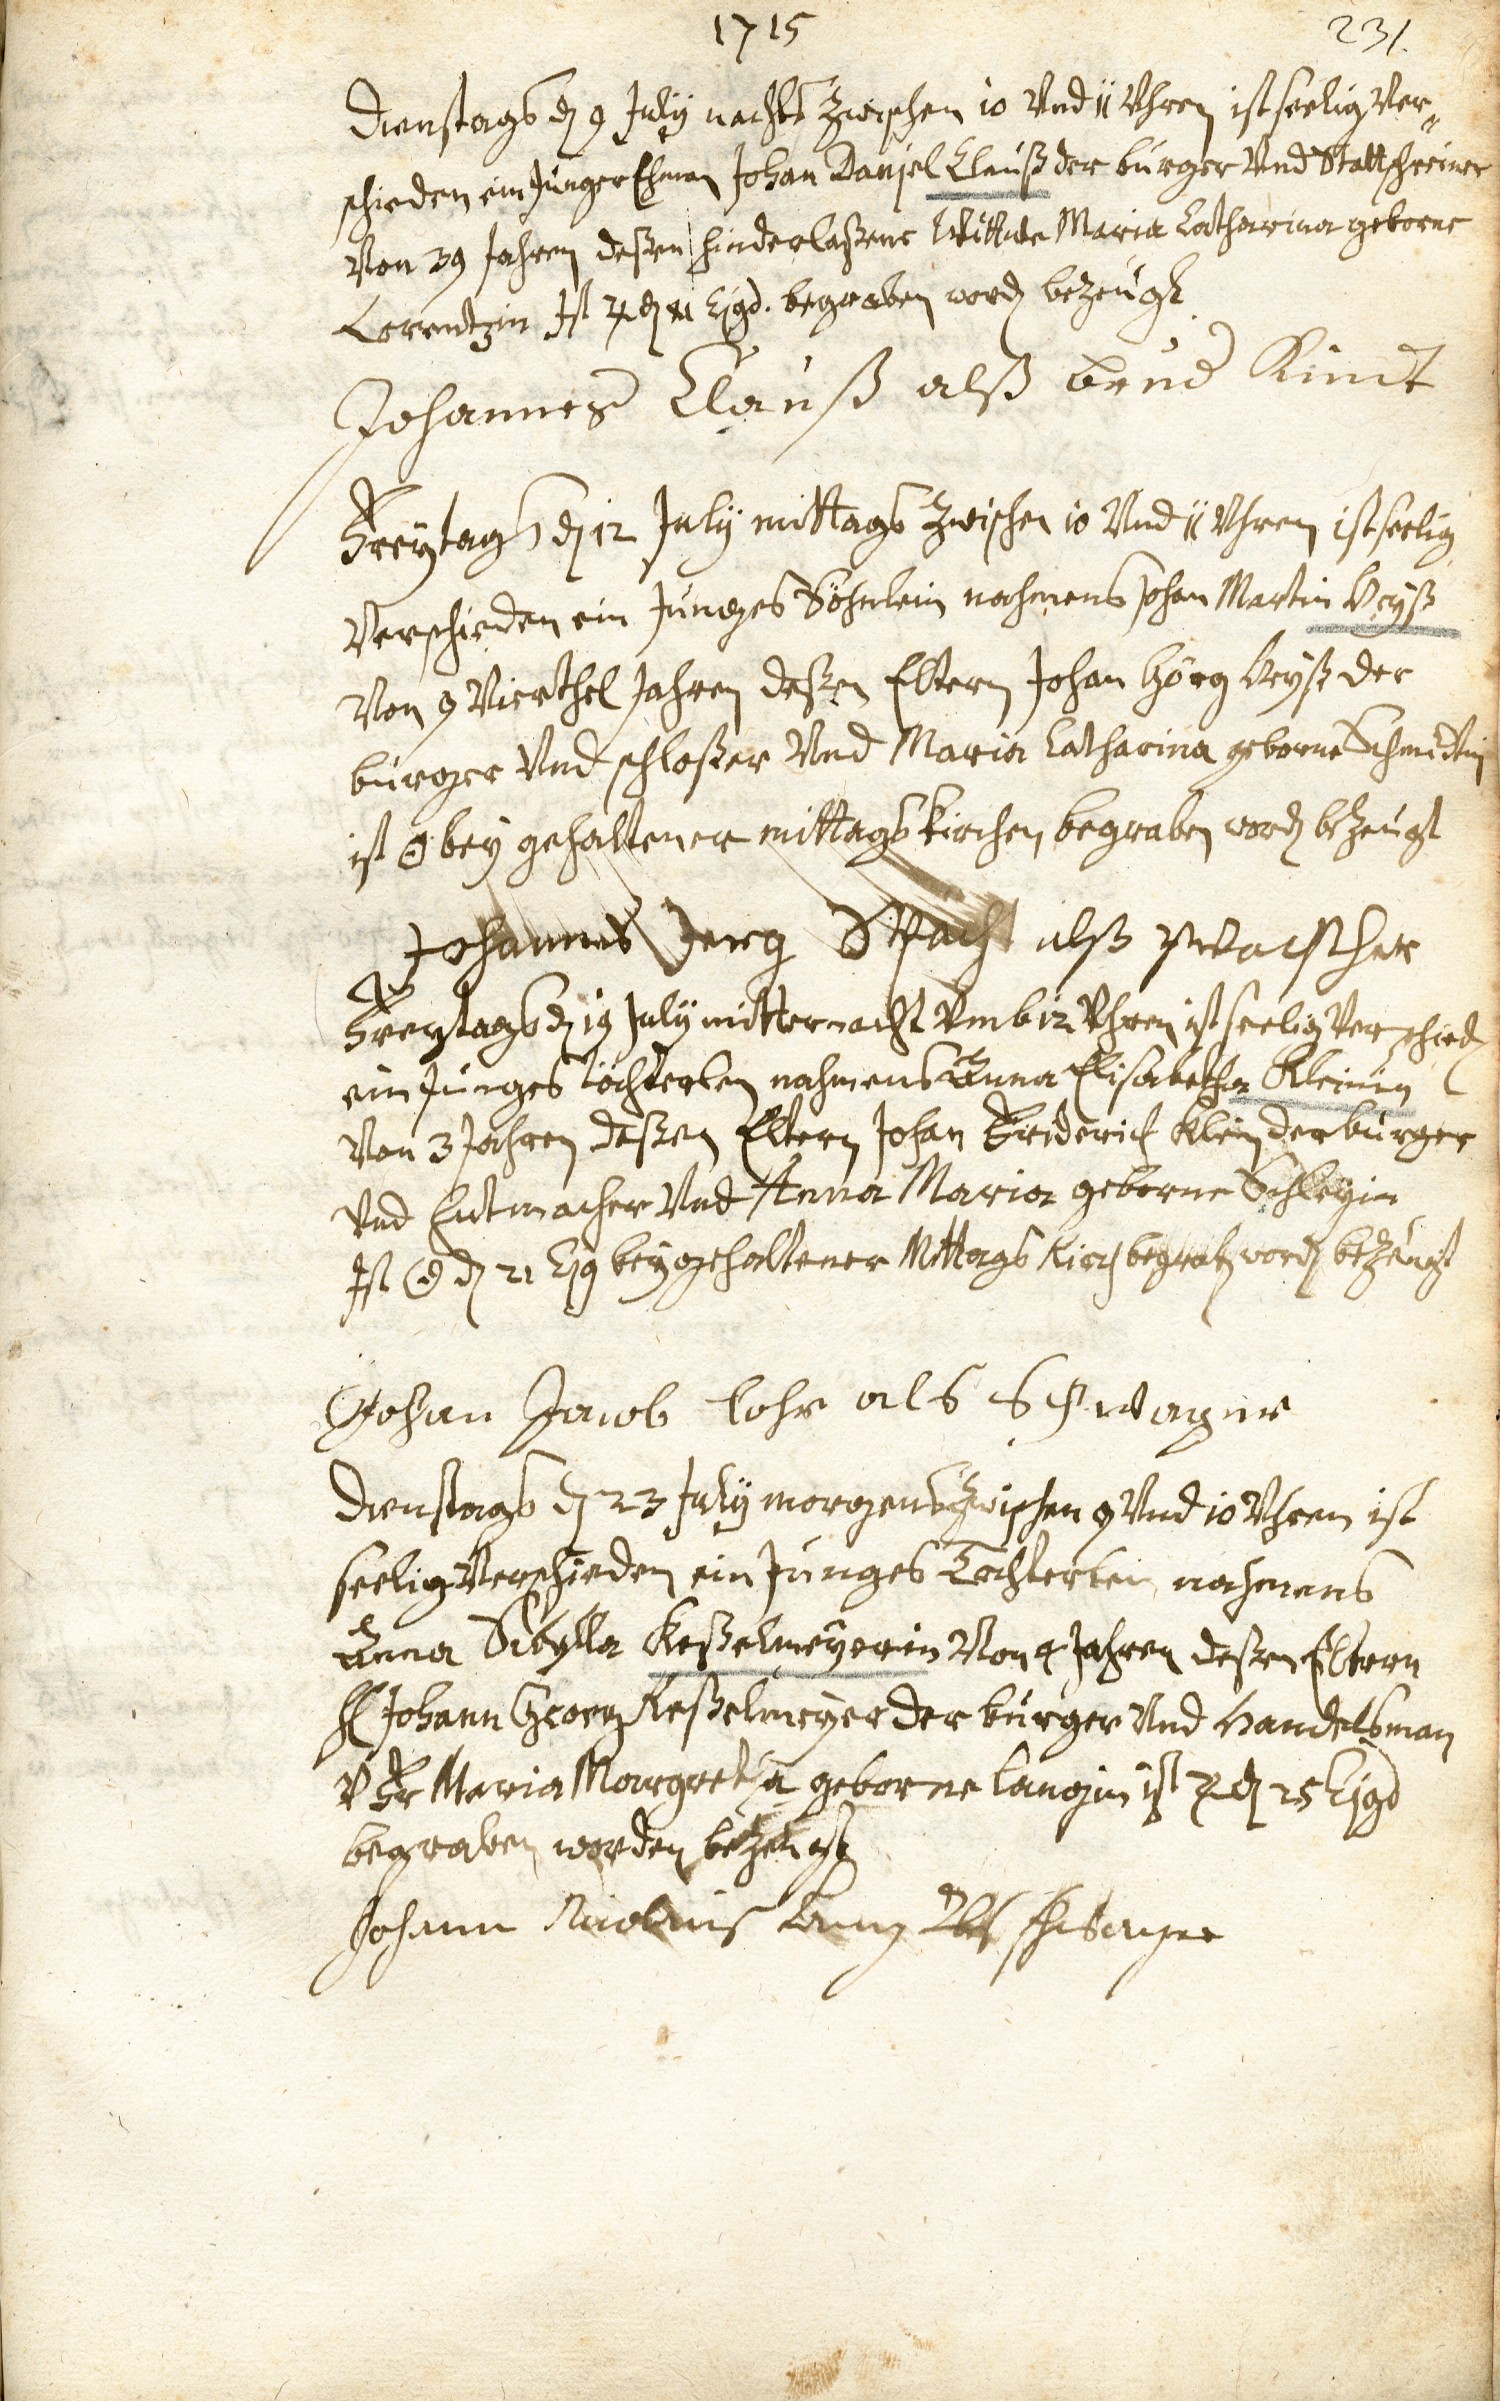 1715
231.
Dienstags dn 9 July nachts zwischen 10 Vnd 11 Vhren ist seelig Ver-
schieden ein Junger Ehman Johan Danjel Clauß der bürger Vnd Statt schreiner
Von 39 Jahren deßen hinderlaßene Wittwe Maria Catharina geborne
Lorentzin Ist ♃ dn 11 Ejgd. begraben word bezeugt
Johannes Clauß alß brud Kindt
Freytags dn 12 July mittags zwischen 10 Vnd 11 Vhren ist seelig
Verschieden ein Junges Söhnlein nahmens Johan Martin
Von 9 Vierthel Jahren deßen Eltern Johan Görg der
bürger Vnd schloßer Vnd Maria Catharina geborne Schmidtin
ist ☉ bey gehaltener mittags kirchen begraben word bezeugt
Johannes Jerg alß
Freytags dn 19 July mitternacht Vmb 12 Vhren ist seelig Verschied
ein Junges töchterlen nahmens Anna Elisabetha Kleinin
Von 3 Jahren deßen Eltern Johan Friderich Klein der burger
Vnd Hutmacher Vnd Anna Maria geborne Schleyin
Ist ☉ dn 21 Ejg bey gehaltener Mittags Kirch begrab word bezeugt
Johan Jacob Lohr als Schwager
Dienstags dn 23 July morgens zwischen 9 Vnd 10 Vhren ist
seelig Verschieden ein Junges Töchterlein nahmens
Anna Sibylla Keßelmeyerin Von 4 Jahren deßen Eltern
H Johann Georg Keßelmeyer der burger Vnd Handelsman
V Fr Maria Margretha geborne Langin ist ♃ dn 25 Ejgd
begraben worden bezeugt
Johann Nicolaus Lang Als schwager